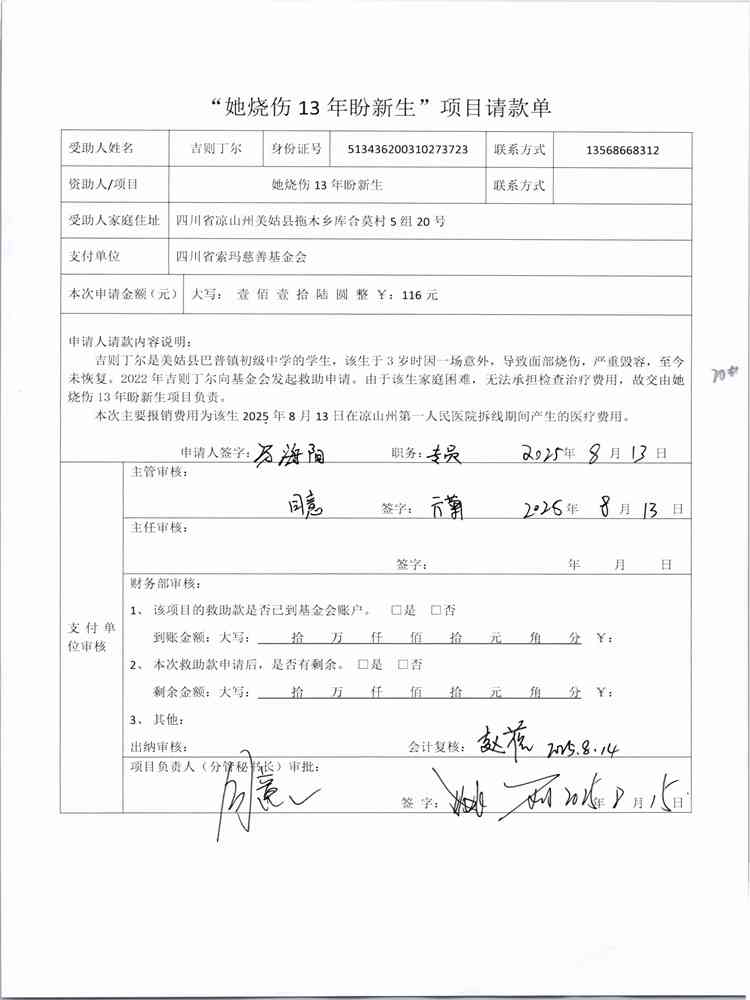 “她烧伤 13 年盼新生”项目请款单
受助人姓名 吉则丁尔 身份证号 513436200310273723 联系方式 13568668312
资助人/项目 她烧伤 13 年盼新生 联系方式
受助人家庭住址 四川省凉山州美姑县拖木乡库合莫村 5 组 20 号
支付单位 四川省索玛慈善基金会
本次申请金额（元） 大写： 壹 佰 壹 拾 陆 圆 整 ￥：116 元
申请人请款内容说明：
吉则丁尔是美姑县巴普镇初级中学的学生，该生于 3 岁时因一场意外，导致面部烧伤，严重毁容，至今
未恢复。2022 年吉则丁尔向基金会发起救助申请。由于该生家庭困难，无法承担检查治疗费用，故交由她
烧伤 13 年盼新生项目负责。
本次主要报销费用为该生 2025 年 8 月 13 日在凉山州第一人民医院拆线期间产生的医疗费用。
申请人签字： 海阳 职务：专员 2025年 8 月 13 日
主管审核：
同意 签字： 2025年 8 月 13 日
主任审核：
签字： 年 月 日
支付单位审核
财务部审核：
1、 该项目的救助款是否已到基金会账户。 □是 □否
到账金额：大写： 拾 万 仟 佰 拾 元 角 分 ￥：
2、 本次救助款申请后，是否有剩余。□是 □否
剩余金额：大写： 拾 万 仟 佰 拾 元 角 分 ￥：
3、 其他：
出纳审核： 会计复核： 赵 2025.8.14
项目负责人（分管秘书长）审批：
同意
签 字： 2025年 8 月 15日